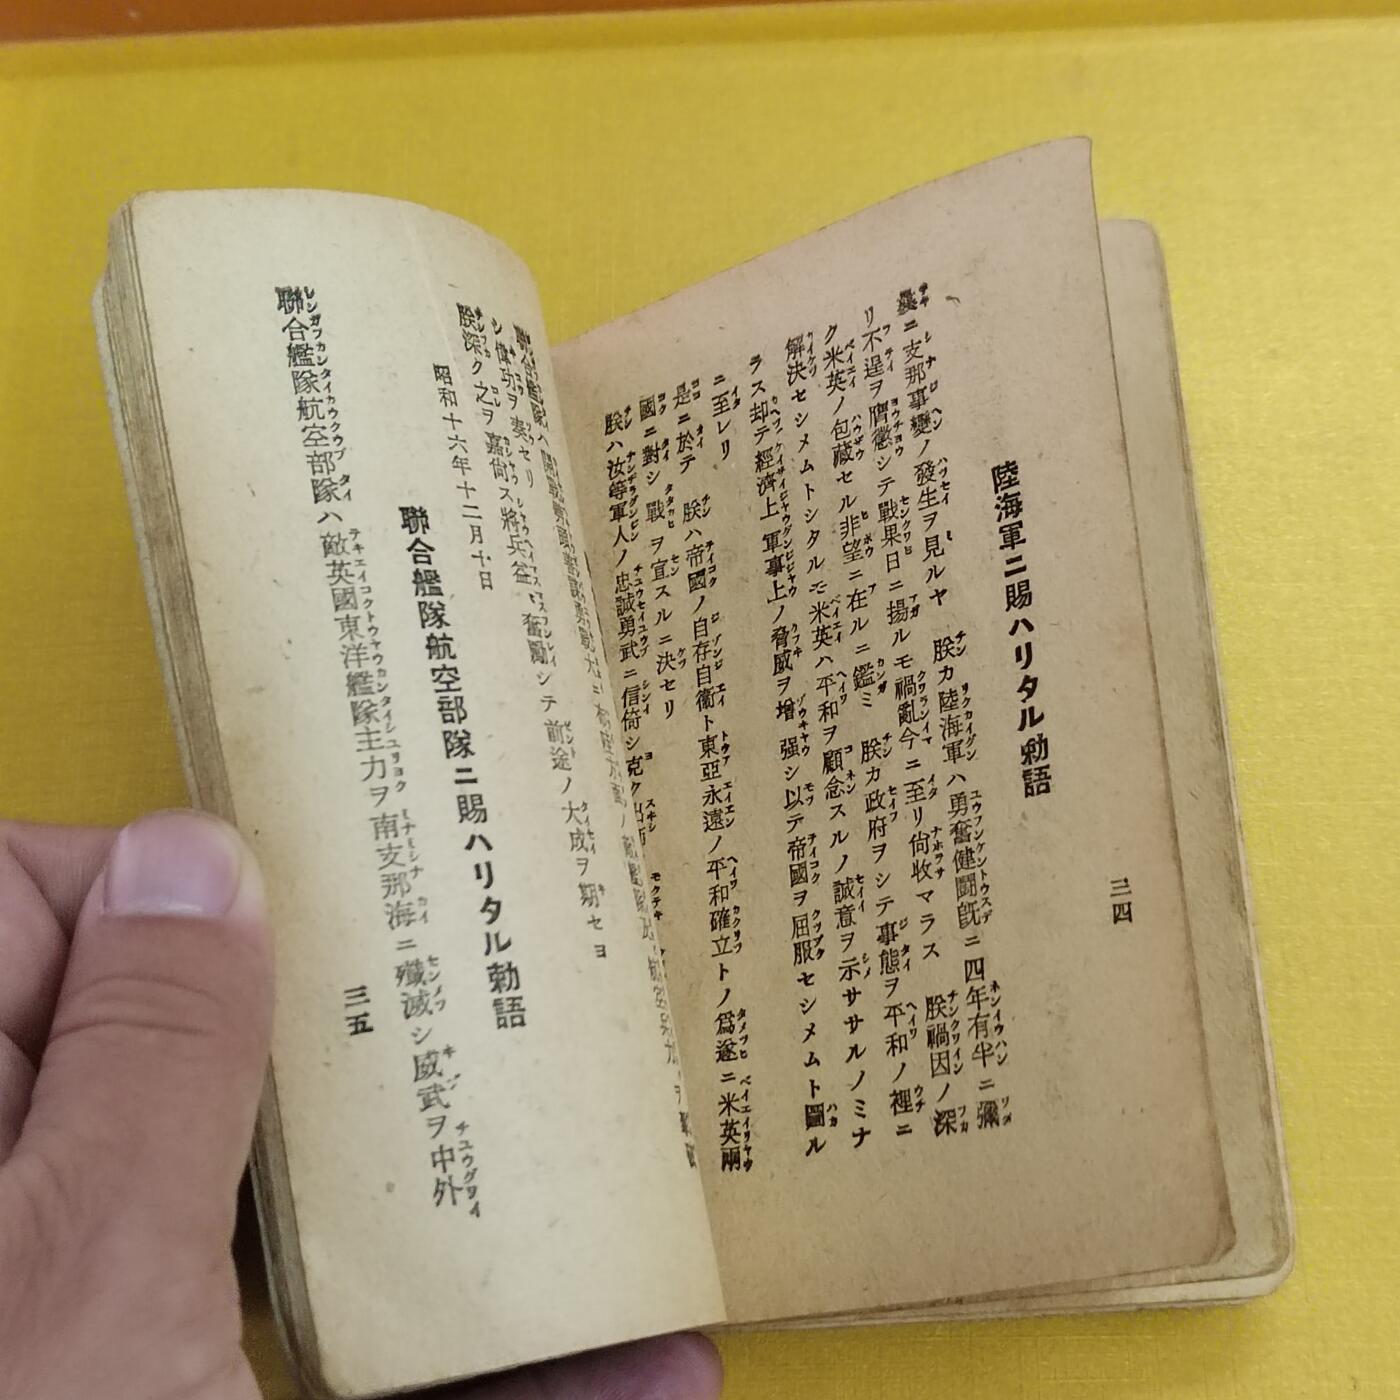 三四
陸海軍ニ賜ハリタル勅語
曩ニ支那事變ノ發生ヲ見ルヤ 朕カ陸海軍ハ勇奮健鬪旣ニ四年有半ニ彌
リ不逞ヲ膺懲シテ戰果日ニ揚ルモ禍亂今ニ至リ尙收マラス 朕禍因ノ深
ク米英ノ包藏セル非望ニ在ルニ鑑ミ 朕カ政府ヲシテ事態ヲ平和ノ裡ニ
解決セシメムトシタルモ米英ハ平和ヲ顧念スルノ誠意ヲ示ササルノミナ
ラス却テ經濟上軍事上ノ脅威ヲ增强シ以テ帝國ヲ屈服セシメムト圖ル
ニ至レリ
是ニ於テ 朕ハ帝國ノ自存自衞ト東亞永遠ノ平和確立トノ爲遂ニ米英兩
國ニ對シ戰ヲ宣スルニ決セリ
朕ハ汝等軍人ノ忠誠勇武ニ信倚シ克ク出師
聯合艦隊ハ開戰
シ偉功ヲ奏セリ
朕深ク之ヲ嘉尙ス將兵益〻奮勵シテ前途ノ大成ヲ期セヨ
昭和十六年十二月十日
聯合艦隊航空部隊ニ賜ハリタル勅語
聯合艦隊航空部隊ハ敵英國東洋艦隊主力ヲ南支那海ニ殲滅シ威武ヲ中外
三五